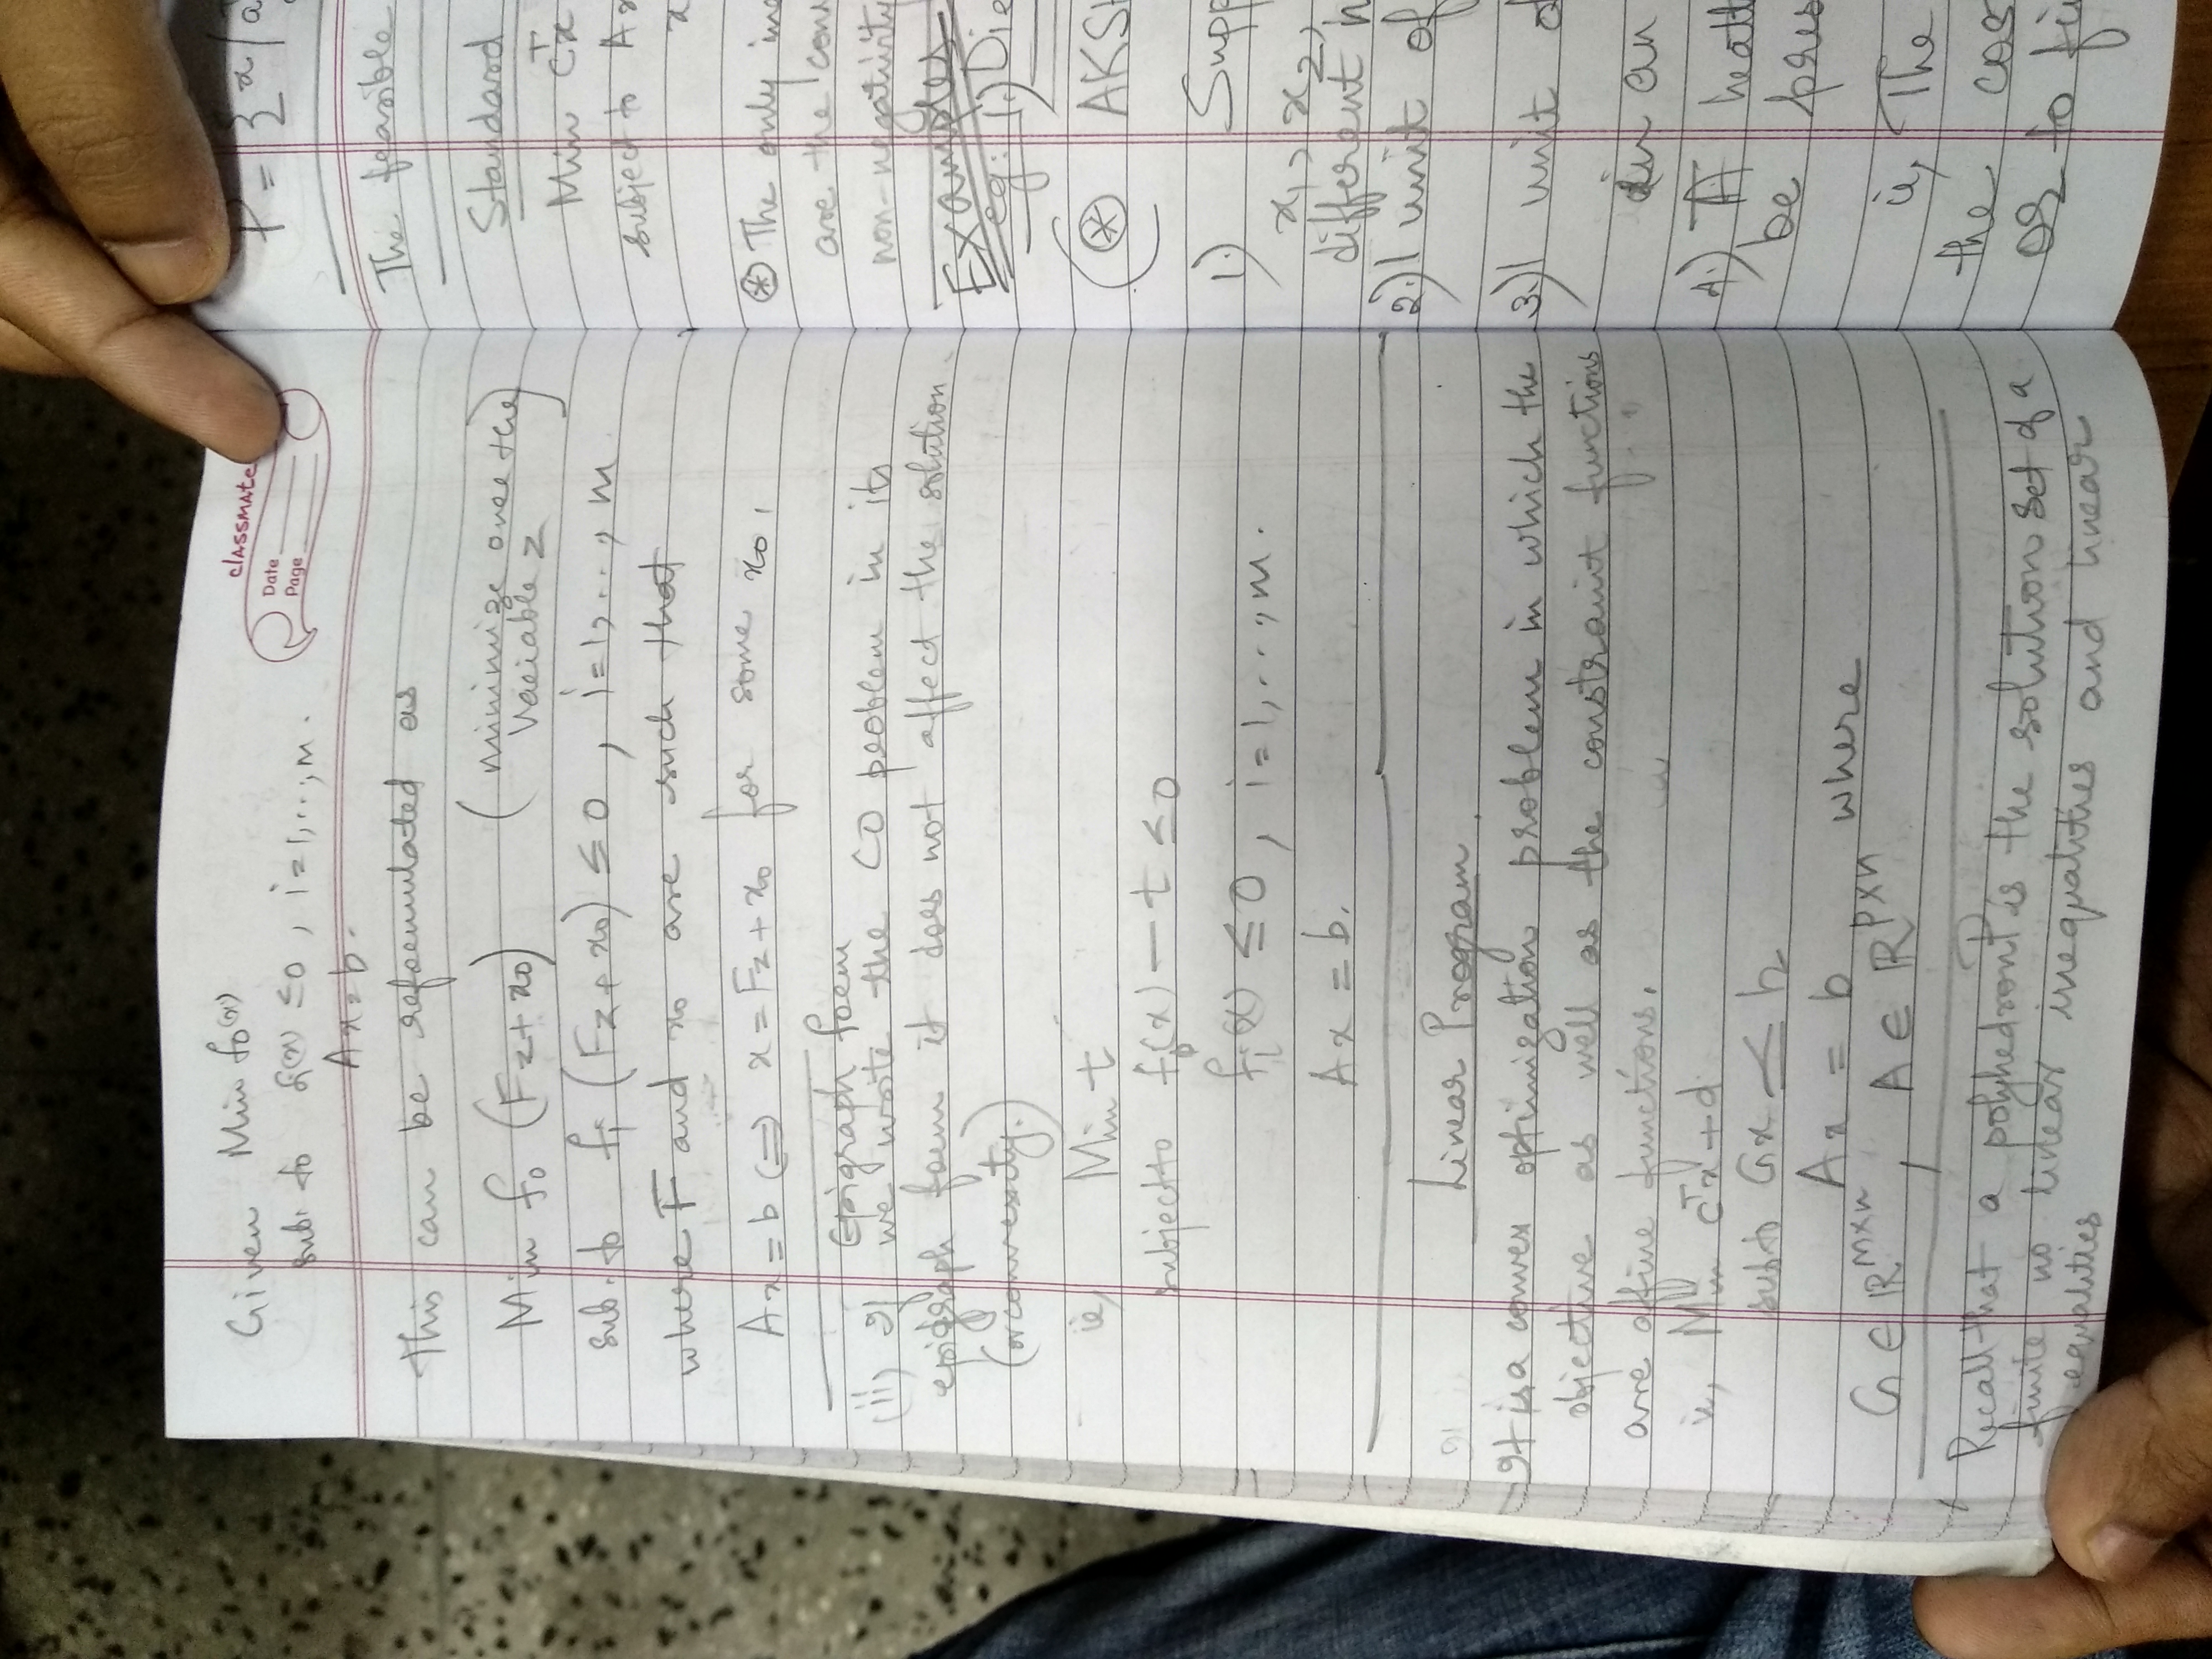 Given Min f₀(x)
sub. to fᵢ(x) ≤ 0, i=1,..,m.
Ax=b.
classmate
Date
Page
This can be reformulated as
Min f₀ (Fz+x₀) (minimize over the
variable z)
sub. to fᵢ (Fz+x₀) ≤ 0, i=1,..,m
where F and x₀ are such that
Ax=b ⟺ x=Fz+x₀ for some x₀.
Epigraph form
(ii) If we write the CO problem in its
epigraph form it does not affect the solution
(or convexity.)
ie, Min t
subject to f₀(x) − t ≤ 0
fᵢ(x) ≤ 0, i=1,..,m.
Ax = b.
Linear Program.
It is a convex optimization problem in which the
objective as well as the constraint functions
are affine functions.
ie, Min cᵀx+d
sub to Gx ≤ h
Ax = b where
G ∈ ℝᵐˣⁿ, A ∈ ℝᵖˣⁿ
Recall that a polyhedron P is the solution set of a
finite no linear inequalities and linear
equalities
P = {x/a
The feasible
Standard
Min cᵀx
subject to A
x
⊛ The only
are the
non-negativity
Examples
eg: 1.)
⊛
1.)
x₁, x₂,
different
2.) 1 unit of
3.) 1 unit
in an
4.) A
be
ie, The
the
or to